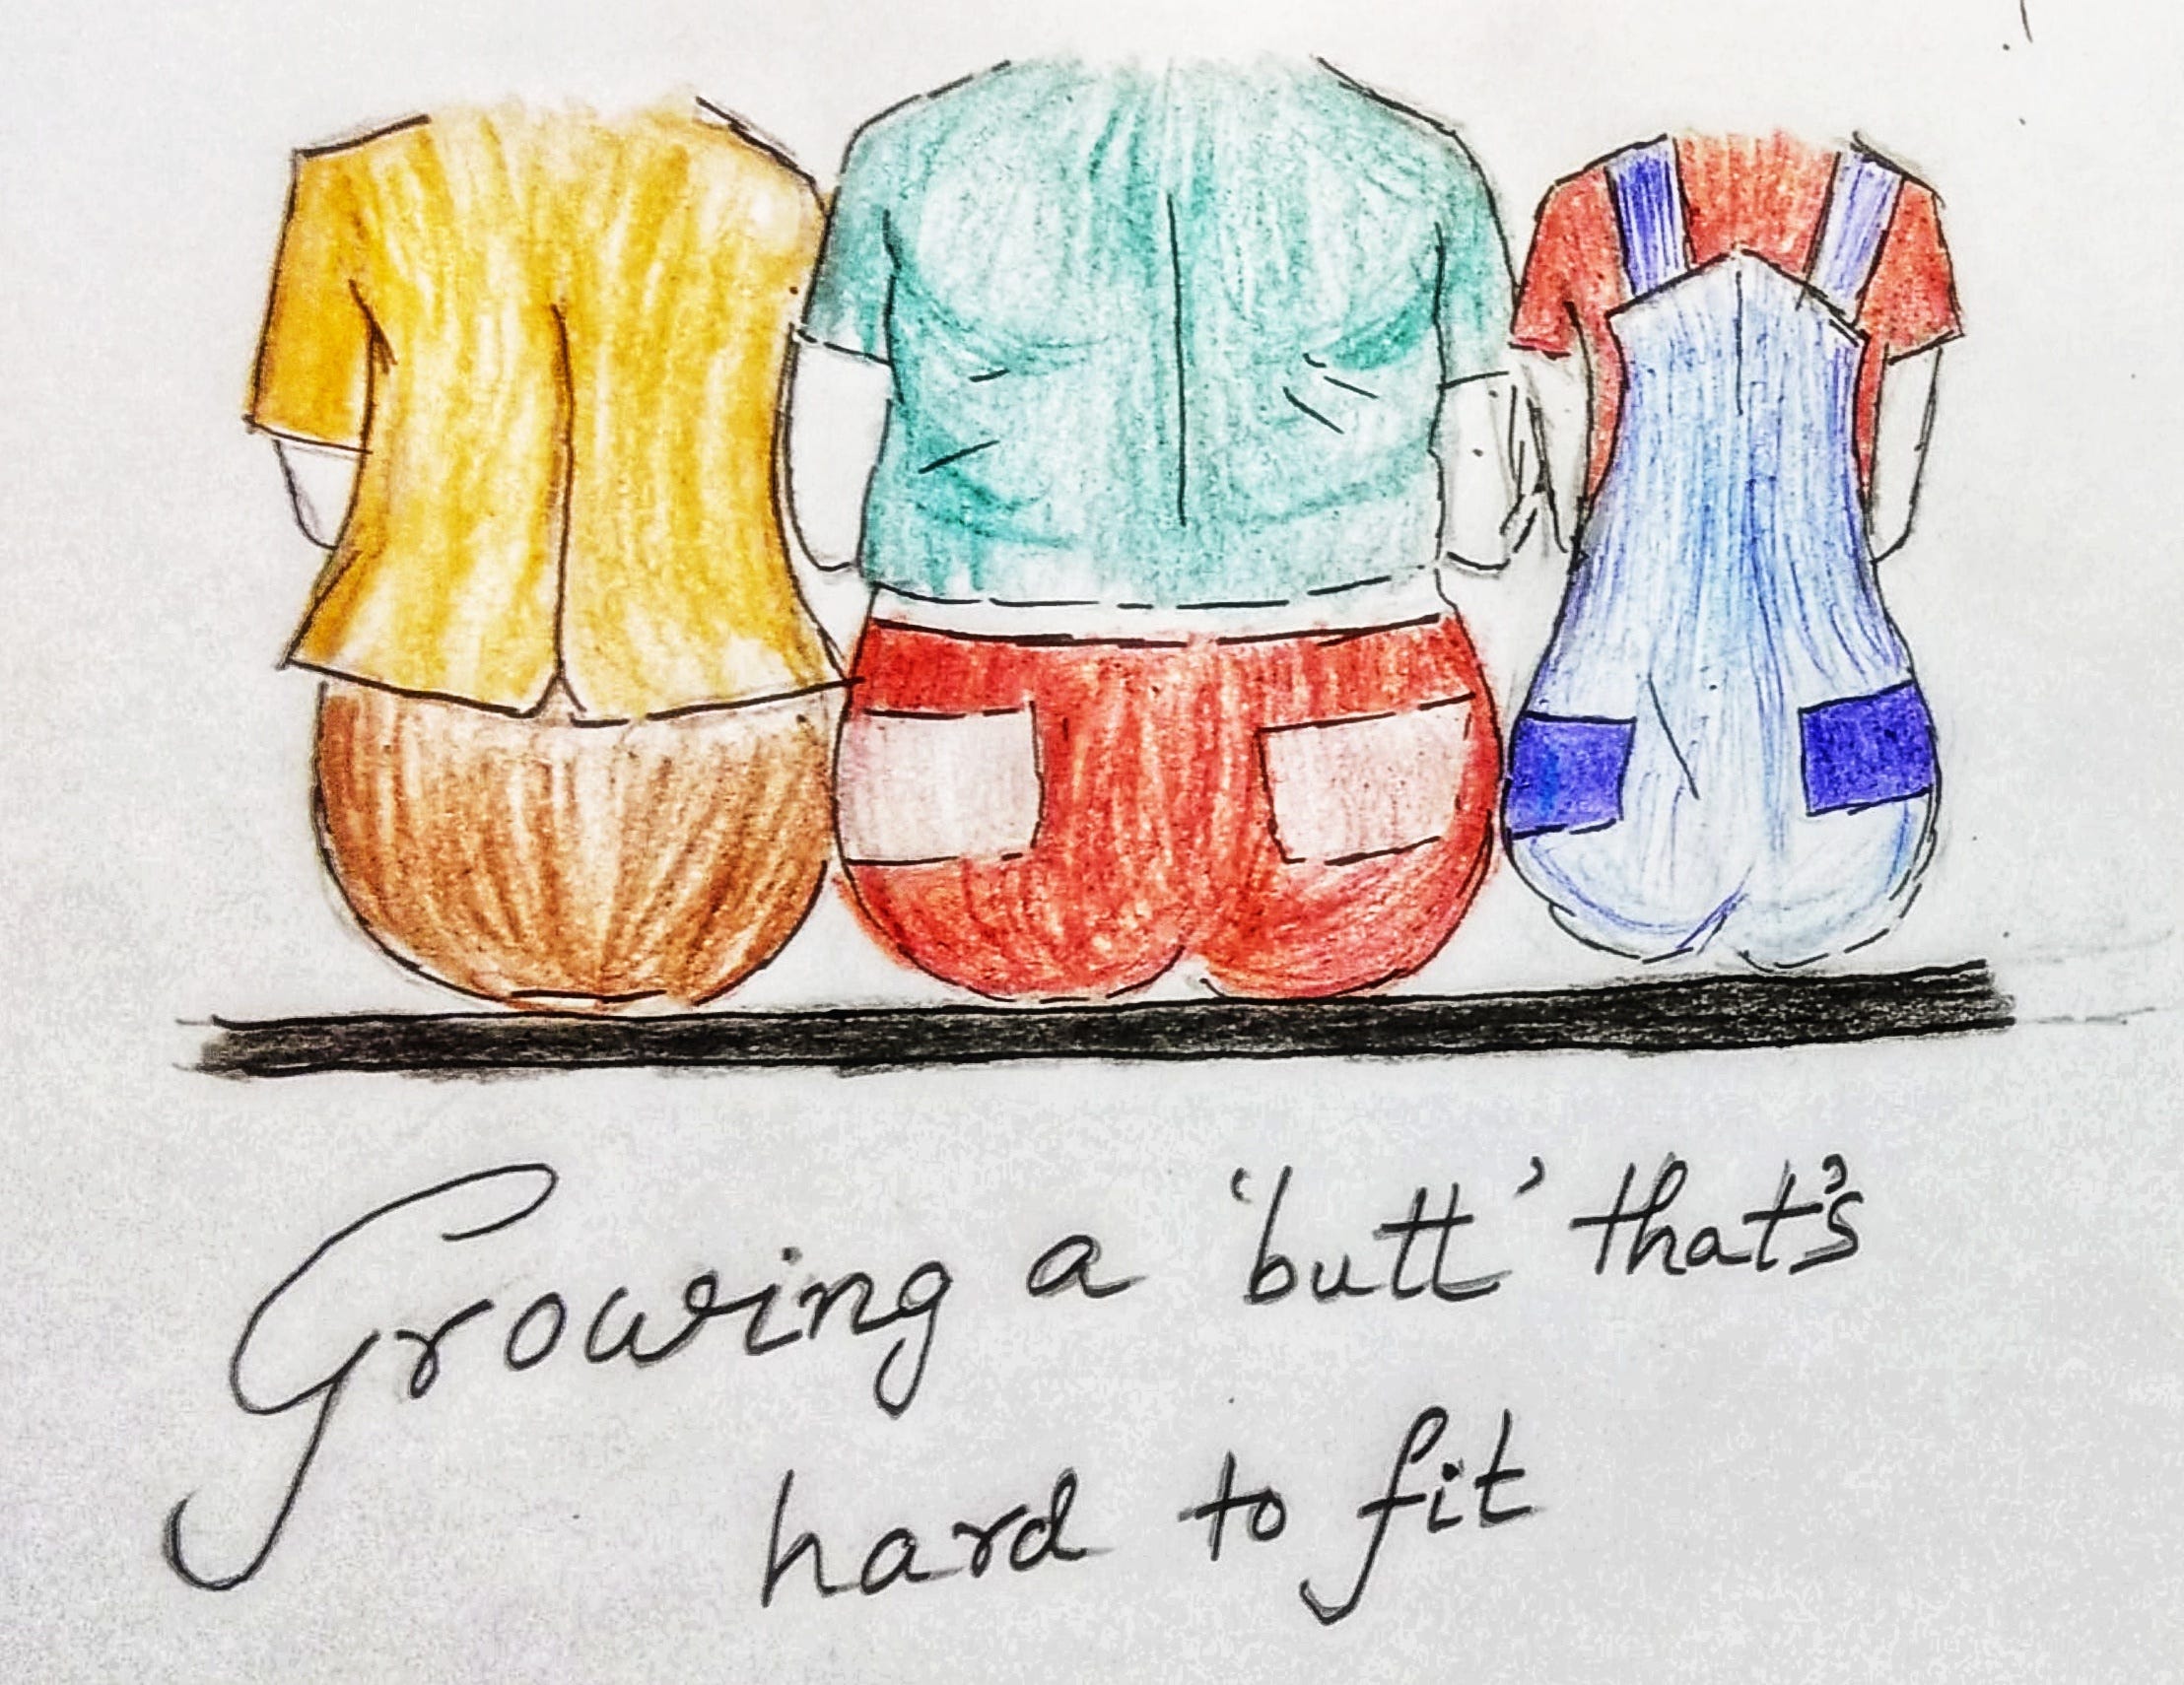 Growing a 'butt' that's
hard to fit